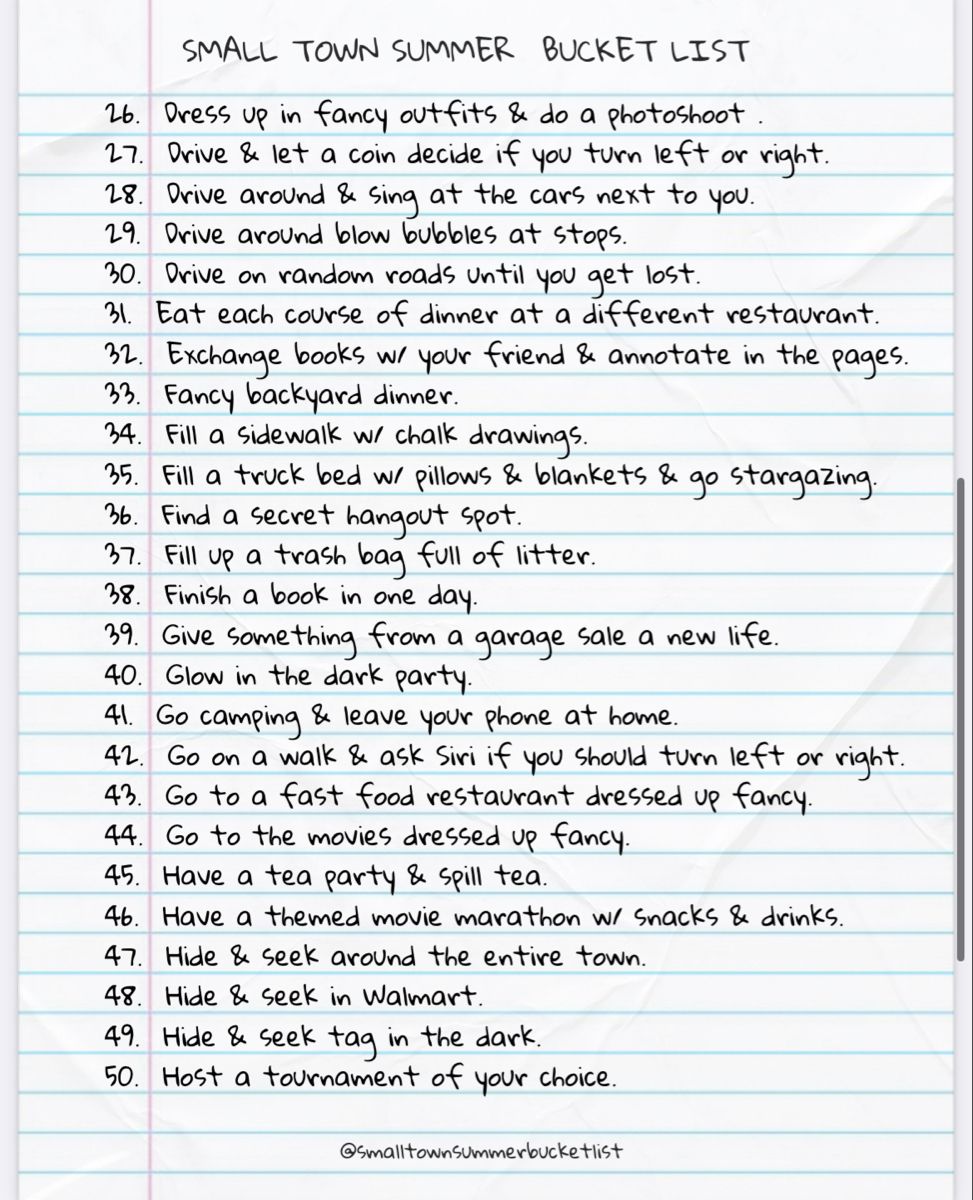 SMALL TOWN SUMMER BUCKET LIST
26. Dress up in fancy outfits & do a photoshoot .
27. Drive & let a coin decide if you turn left or right.
28. Drive around & sing at the cars next to you.
29. Drive around blow bubbles at stops.
30. Drive on random roads until you get lost.
31. Eat each course of dinner at a different restaurant.
32. Exchange books w/ your friend & annotate in the pages.
33. Fancy backyard dinner.
34. Fill a sidewalk w/ chalk drawings.
35. Fill a truck bed w/ pillows & blankets & go stargazing.
36. Find a secret hangout spot.
37. Fill up a trash bag full of litter.
38. Finish a book in one day.
39. Give something from a garage sale a new life.
40. Glow in the dark party.
41. Go camping & leave your phone at home.
42. Go on a walk & ask Siri if you should turn left or right.
43. Go to a fast food restaurant dressed up fancy.
44. Go to the movies dressed up fancy.
45. Have a tea party & spill tea.
46. Have a themed movie marathon w/ snacks & drinks.
47. Hide & seek around the entire town.
48. Hide & seek in Walmart.
49. Hide & seek tag in the dark.
50. Host a tournament of your choice.
@smalltownsummerbucketlist